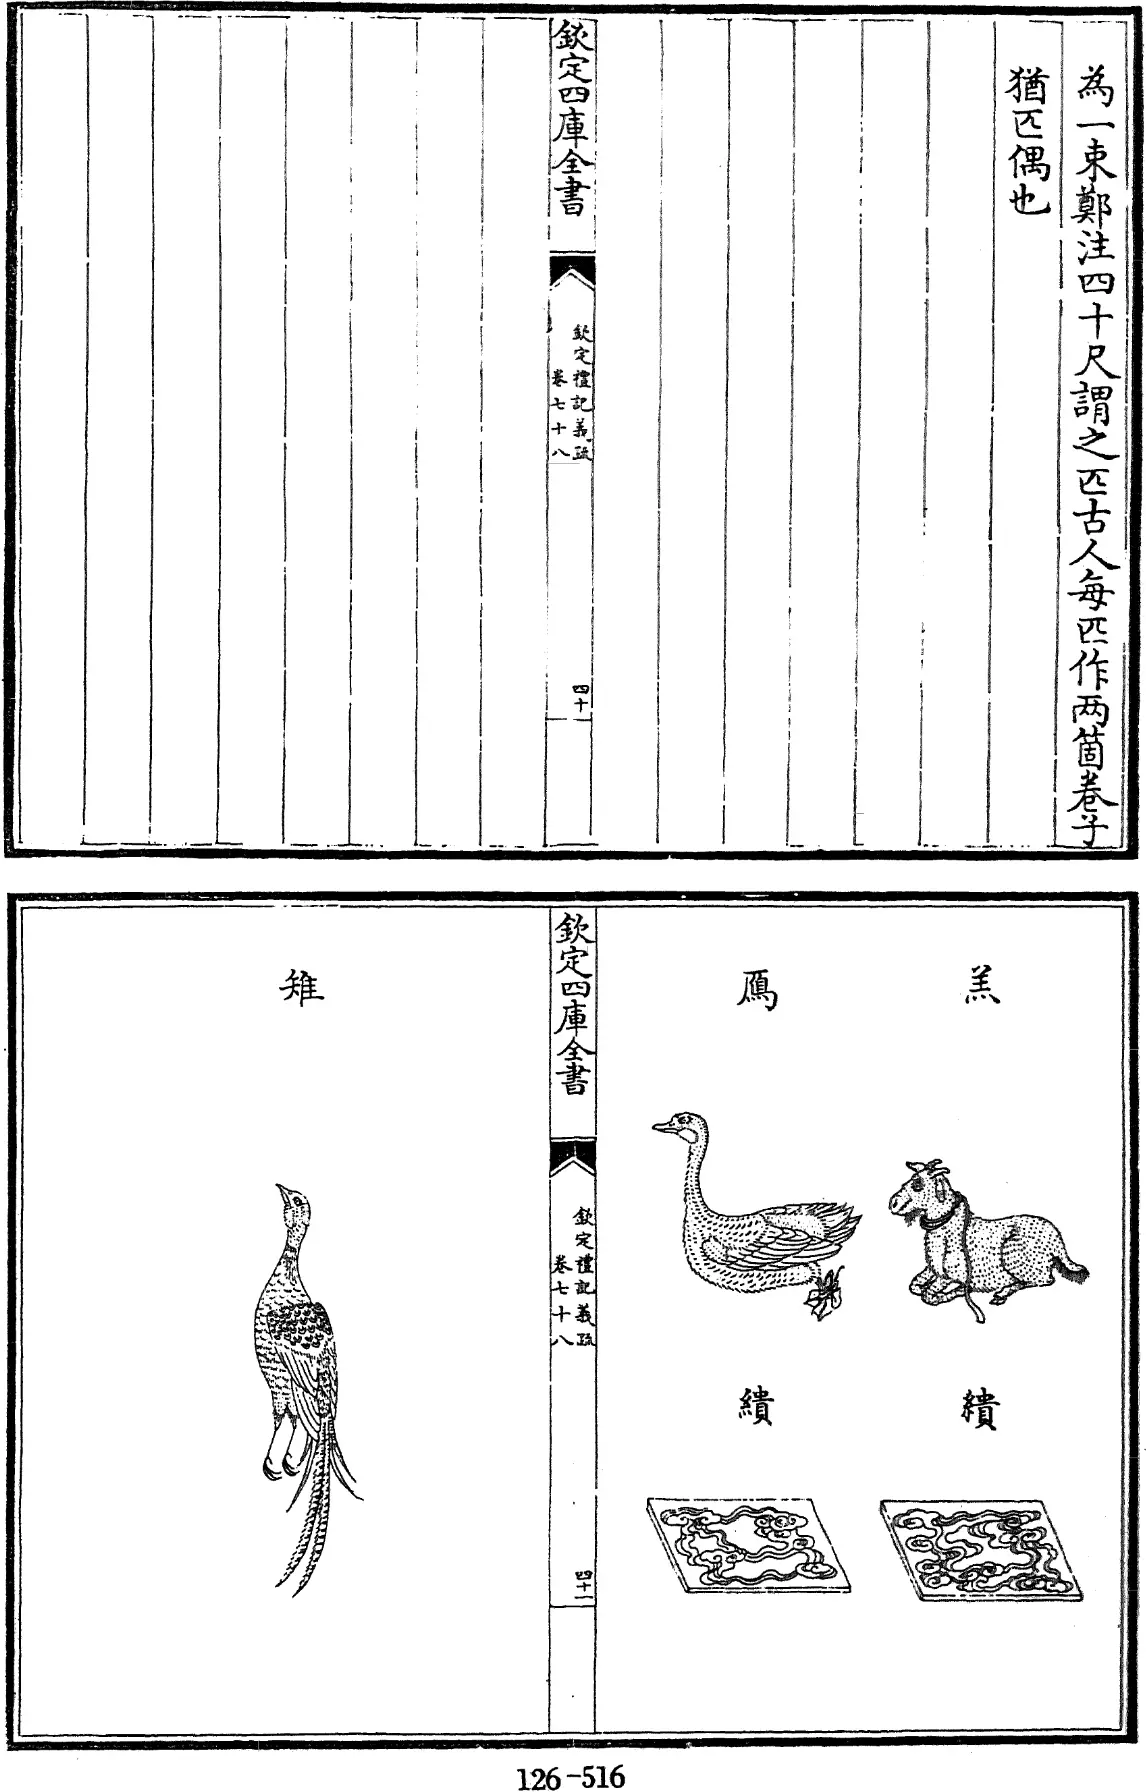 為一束鄭注四十尺謂之匹古人每匹作两箇卷子
猶匹偶也
欽定四庫全書
欽定禮記義疏
卷七十八
四十
羔
鴈
繢
繢
欽定四庫全書
欽定禮記義疏
卷七十八
四十一
雉
126-516